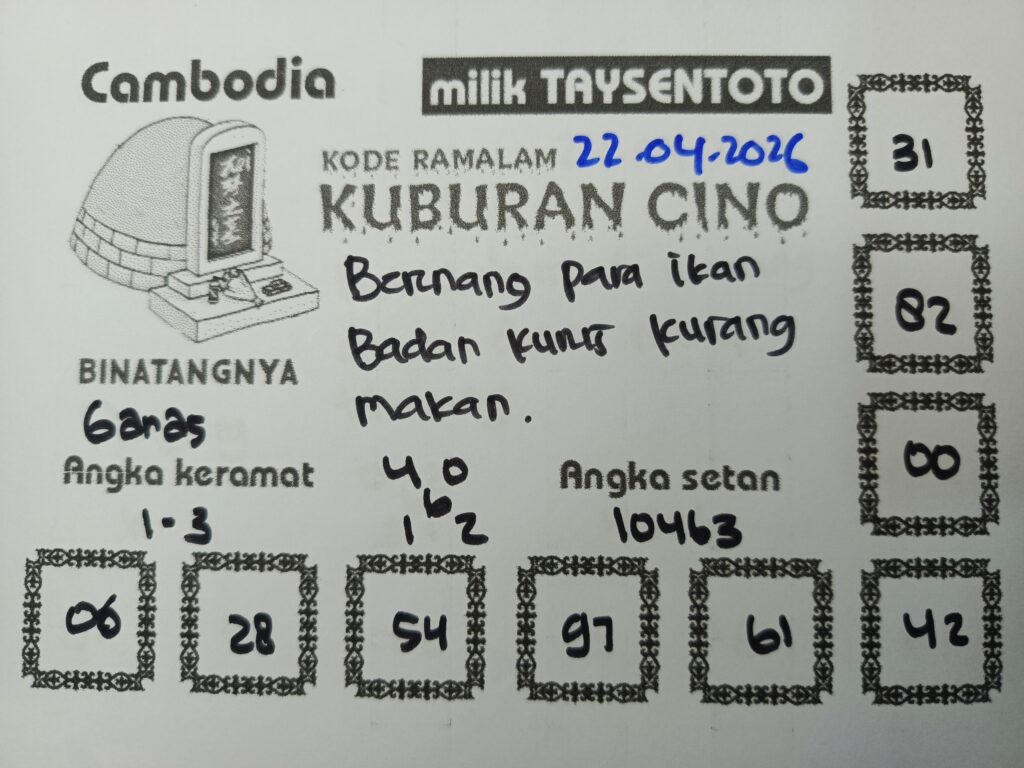 Cambodia
milik TAYSENTOTO
KODE RAMALAM 22.04.2026
KUBURAN CINO
Berenang para ikan
Badan kurus kurang
makan.
BINATANGNYA
Ganas
Angka keramat
1-3
4 0
6
1 2
Angka setan
10463
31
82
00
06 28 54 97 61 42